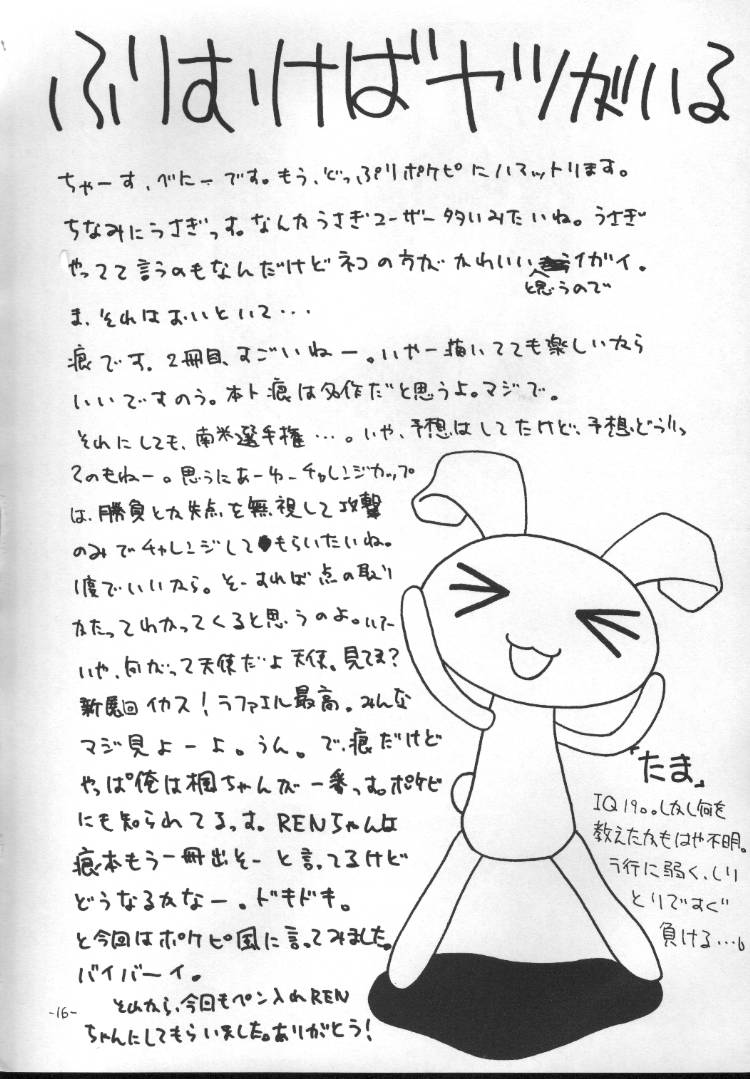 ふりむけばヤツがいる
ちゃーす、べにーです。もう、どっぷりポケピにハマットります。
ちなみにうさぎっす。なんかうさぎユーザー多いみたいね。うさぎ
やってて言うのもなんだけどネコの方がかわいい
と思うので
イガイ。
ま、それはおいといて・・・
痕です。2冊目、すごいねー。いやー描いてても楽しいから
いいですのう。本ト痕は名作だと思うよ。マジで。
それにしても、南米選手権・・・。いや、予想はしてたけど、予想どうりっ
てのもねー。思うにあーゆーチャレンジカップ
は、勝負とか失点を無視して攻撃
のみでチャレンジしてもらいたいね。
1度でいいから。そーすれば点の取り
かたってわかってくると思うのよ。
いや、向がって天使だよ天使。見てま?
新 イカス!ラファエル最高。みんな
マジ見よーよ。うん。で、痕だけど
やっぱ俺は楓ちゃんが一番っす。ポケピ
にも知られてるっす。RENちゃんは
痕本もう一冊出そーと言ってるけど
どうなるかなー。ドキドキ。
と今回はポケピ風に言ってみました。
バイバーイ。
それから、今回もペン入れREN
ちゃんにしてもらいました。ありがとう!
「たま」
IQ190。しかし何を
教えたかもはや不明。
ラ行に弱く、しり
とりですぐ
負ける…。
-16-